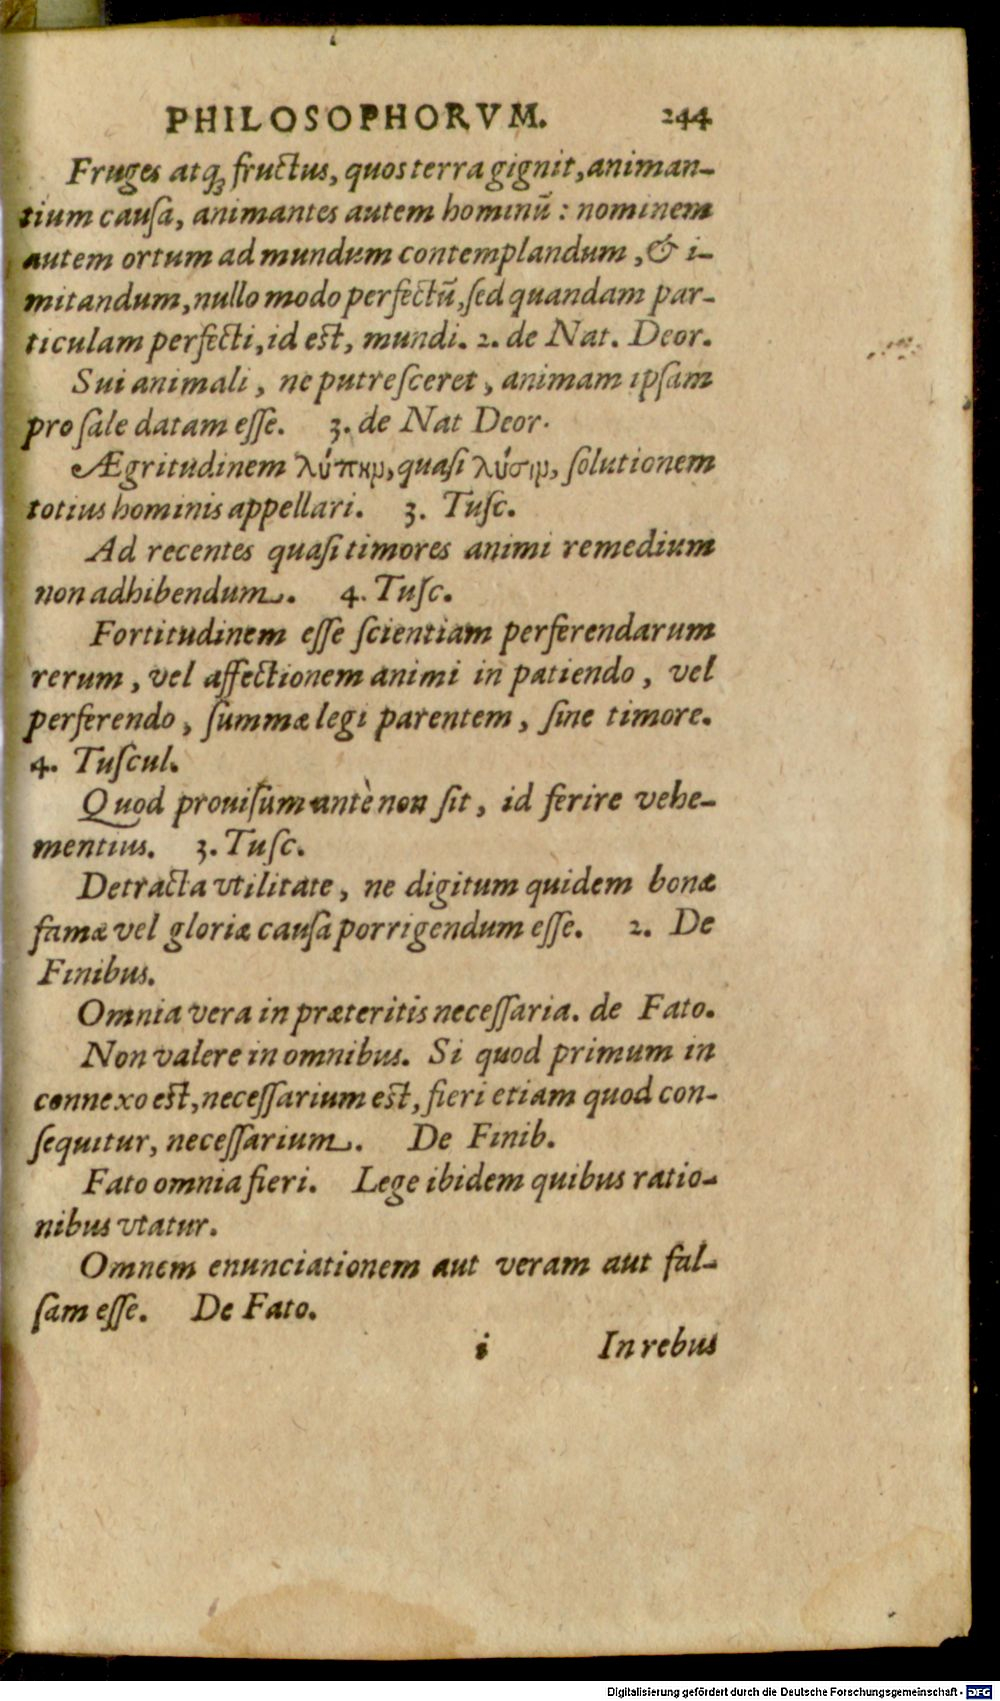 PHILOSOPHORVM. 244
Fruges atq́; fructus, quos terra gignit, animan-
tium cauſa, animantes autem hominũ : nominem
autem ortum ad mundum contemplandum, & i-
mitandum, nullo modo perfectũ, ſed quandam par-
ticulam perfecti, id est, mundi. 2. de Nat. Deor.
Sui animali, ne putreſceret, animam ipſam
pro ſale datam eſſe. 3. de Nat Deor.
Ægritudinem λύπην, quaſi λύσιν, ſolutionem
totius hominis appellari. 3. Tuſc.
Ad recentes quaſi timores animi remedium
non adhibendum. 4. Tuſc.
Fortitudinem eſſe ſcientiam perferendarum
rerum, vel affectionem animi in patiendo, vel
perferendo, ſummæ legi parentem, ſine timore.
4. Tuſcul.
Quod prouiſum antè non ſit, id ferire vehe-
mentius. 3. Tuſc.
Detracta vtilitate, ne digitum quidem bonæ
famæ vel gloriæ cauſa porrigendum eſſe. 2. De
Finibus.
Omnia vera in præteritis neceſſaria. de Fato.
Non valere in omnibus. Si quod primum in
connexo est, neceſſarium est, fieri etiam quod con-
ſequitur, neceſſarium. De Finib.
Fato omnia fieri. Lege ibidem quibus ratio-
nibus vtatur.
Omnem enunciationem aut veram aut fal-
ſam eſſe. De Fato.
i In rebus
Digitalisierung gefördert durch die Deutsche Forschungsgemeinschaft - DFG